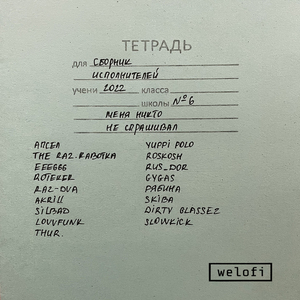 ТЕТРАДЬ
для СБОРНИК
ИСПОЛНИТЕЛЕЙ
учени 2022 класса
школы №6
МЕНЯ НИКТО
НЕ СПРАШИВАЛ
АПСЕЛ
THE RAZ.RABOTKA
EEEGGG
ROTEKER
RAZ-DVA
AKRILL
SILBAD
LOVVFUNK
THUR.
YUPPI POLO
ROSKOSH
RUS_DOR
GYGAS
РАБИНА
SKIBA
DIRTY GLASSEZ
SLOWKICK
welofi